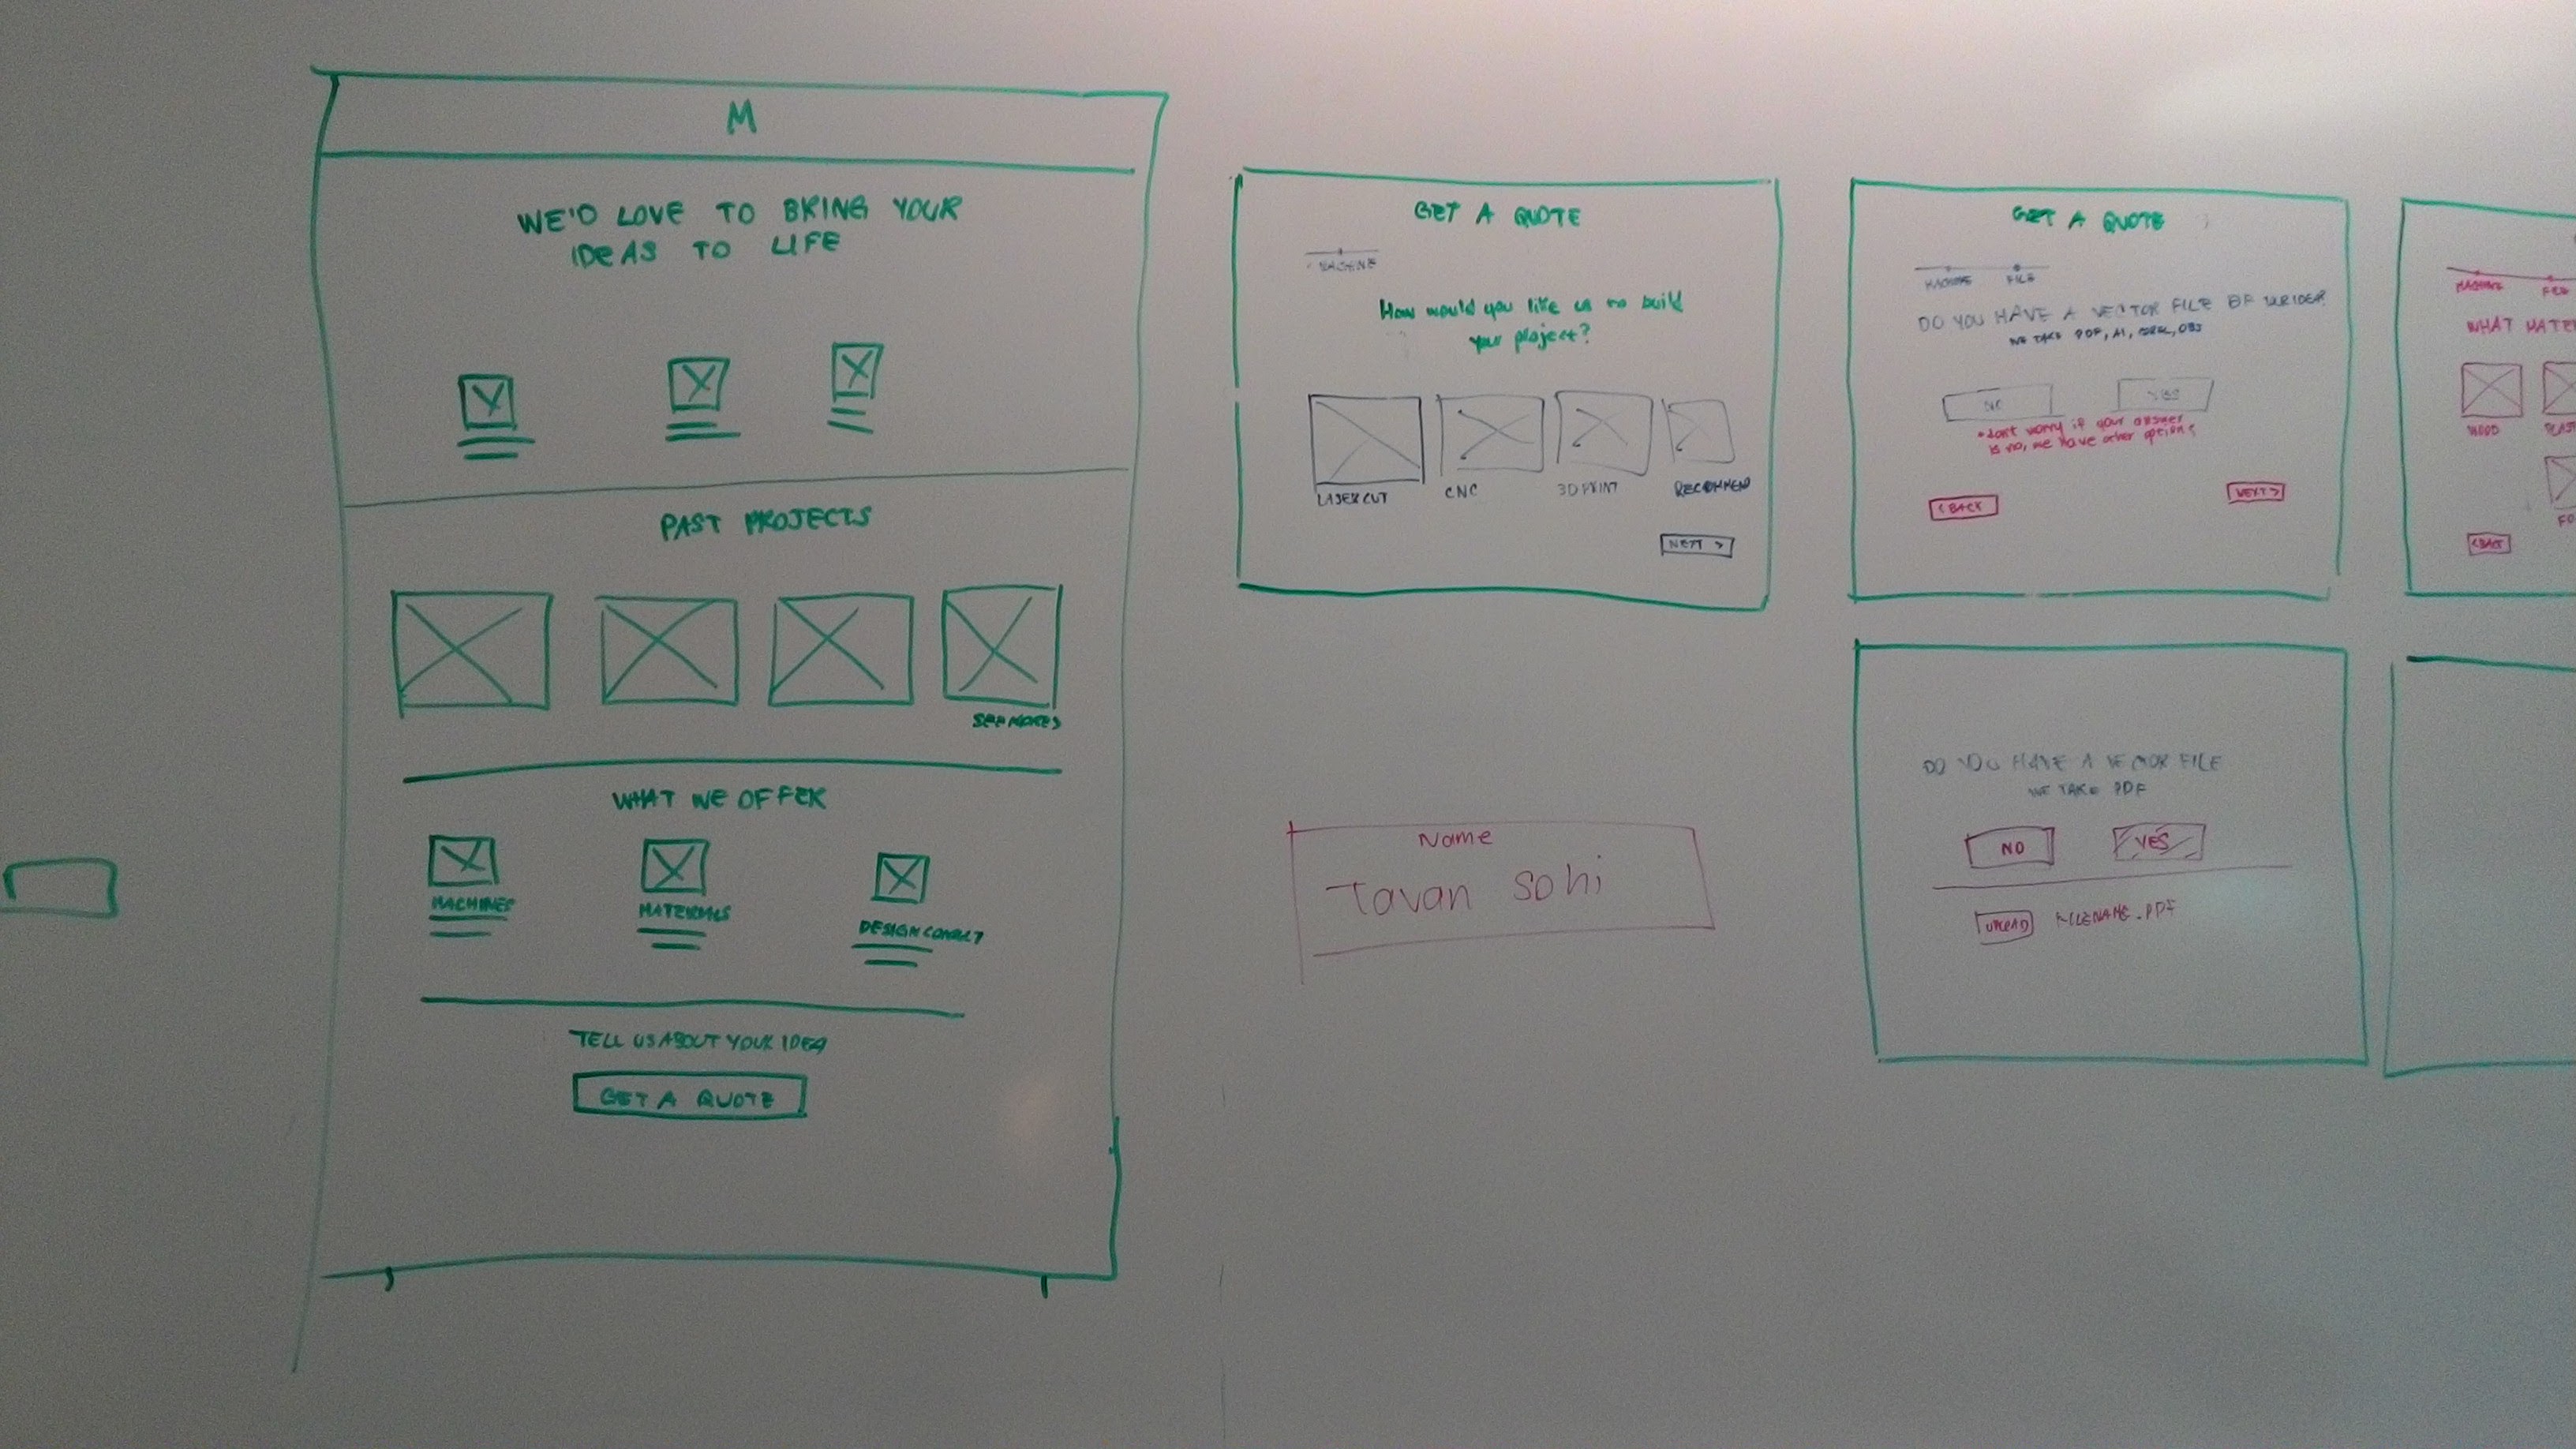 M
WE'D LOVE TO BRING YOUR
IDEAS TO LIFE
PAST PROJECTS
SEE MORE >
WHAT WE OFFER
MACHINES
MATERIALS
DESIGN CONSULT
TELL US ABOUT YOUR IDEA
GET A QUOTE
GET A QUOTE
MACHINE
How would you like us to build
your project?
LASER CUT
CNC
3D PRINT
RECOMMEN
NEXT >
Name
Tavan Sohi
GET A QUOTE
MACHINE
FILE
DO YOU HAVE A VECTOR FILE OF
WE TAKE PDF, AI,
NO
YES
*dont worry if your answer
is no, we have other options
< BACK
NEXT >
DO YOU HAVE A VECTOR FILE
WE TAKE PDF
NO
YES
UPLOAD
FILENAME.PDF
MACHINE
FILE
WHAT MATE
WOOD
PLAST
FO
< BACK